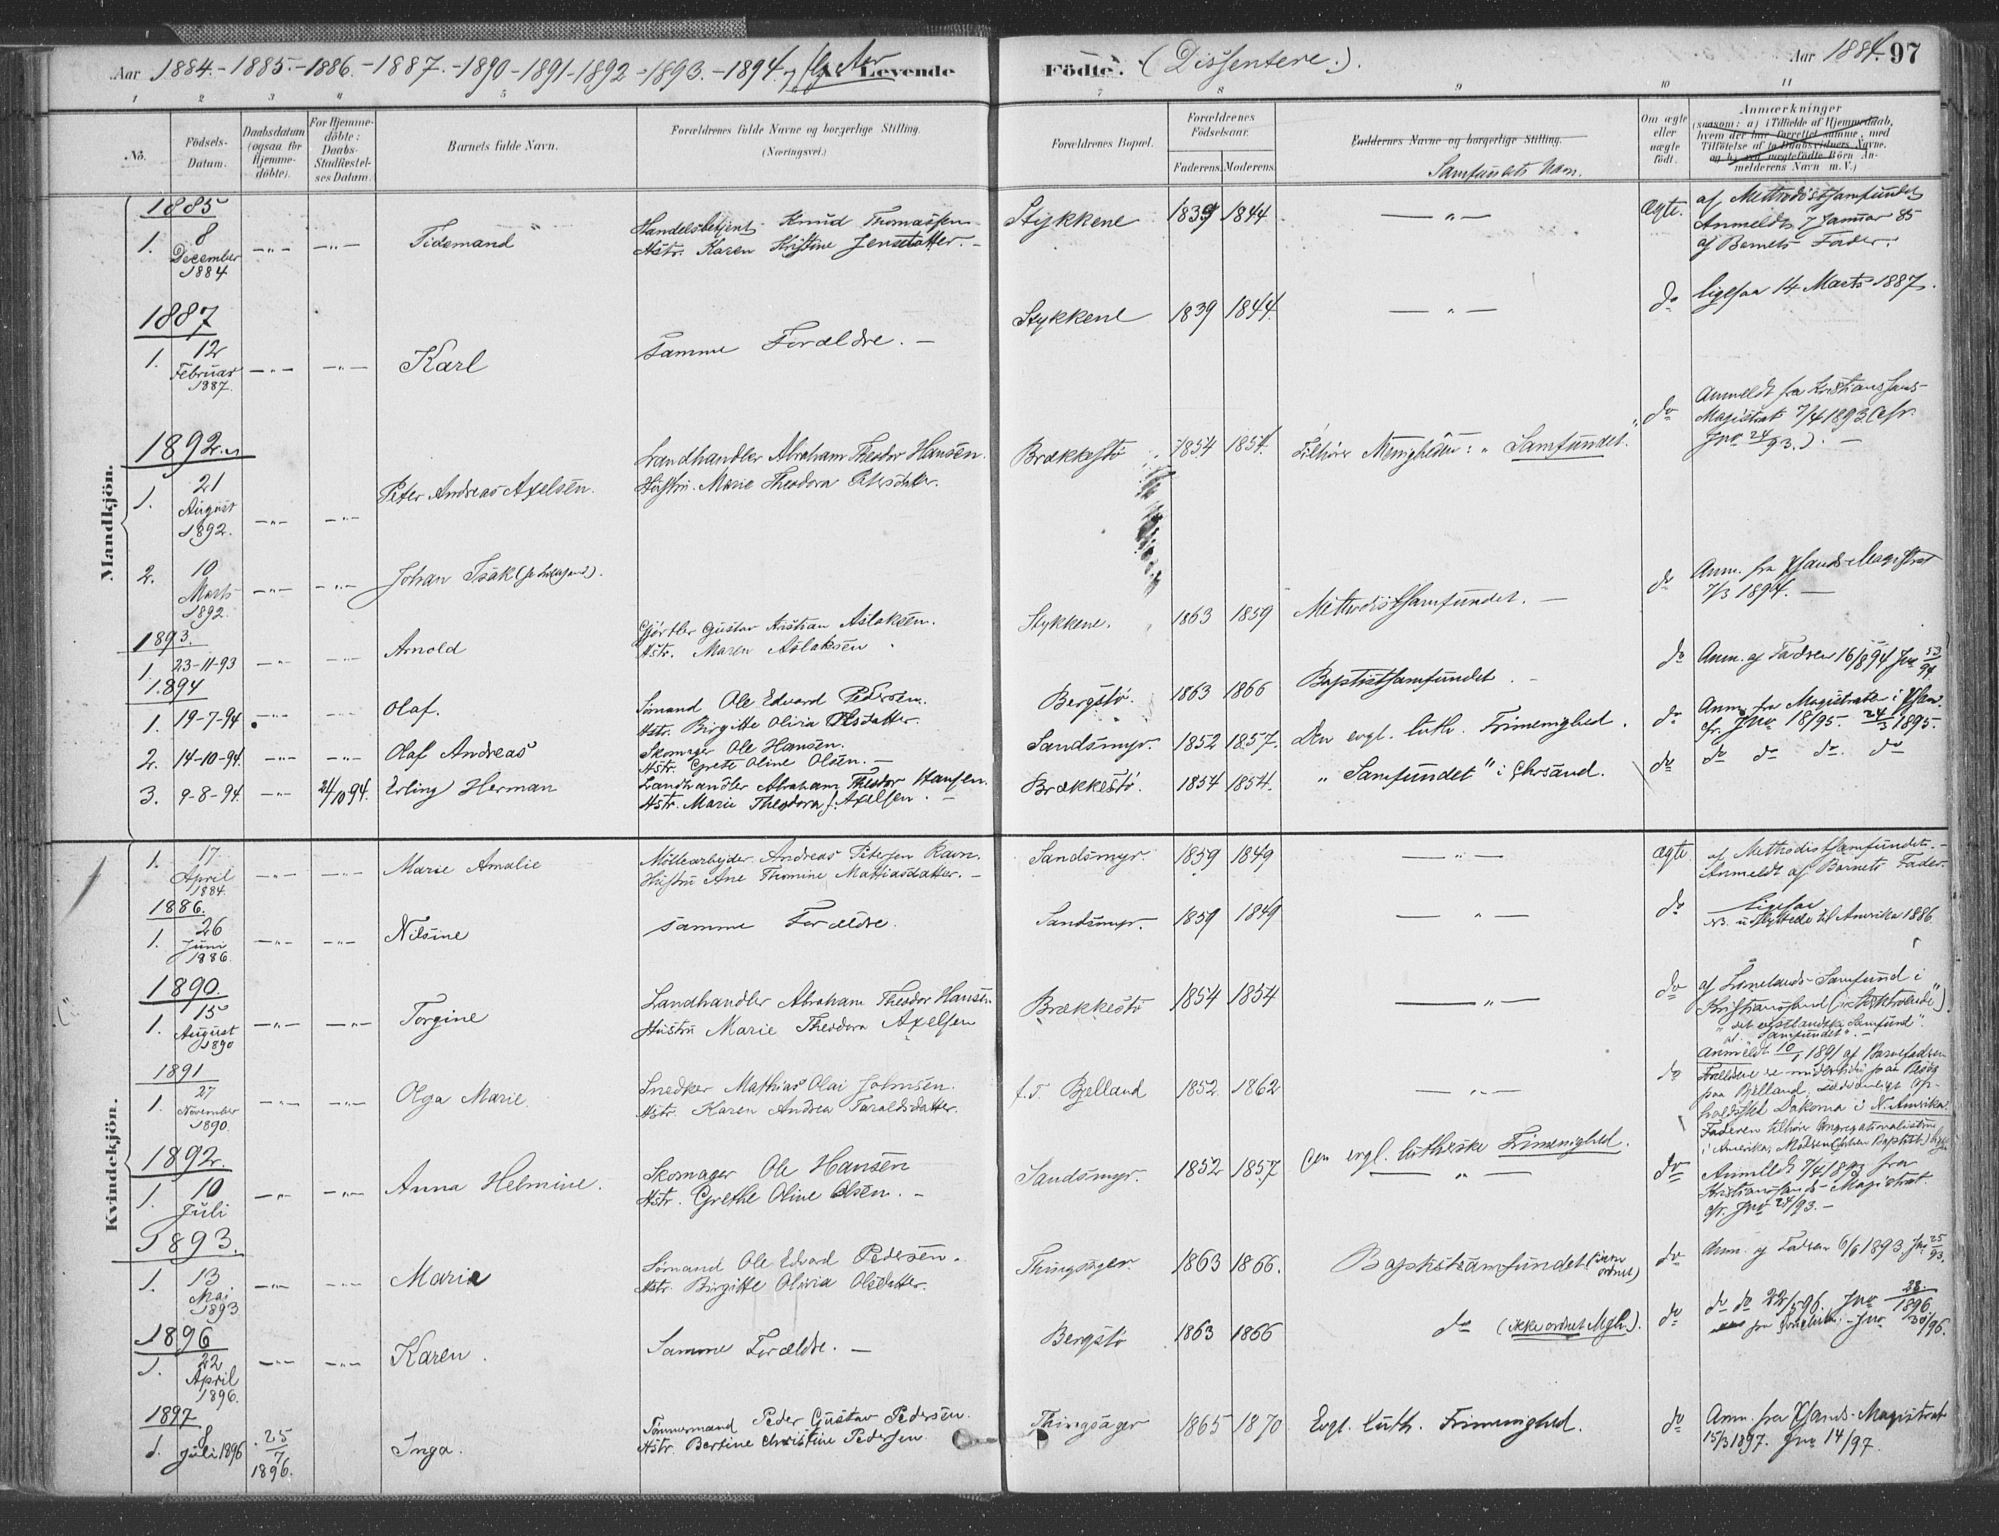 Aar 1884.-1885.-1886.-1887.-1890-1891-1892-1893.-1894. Levende Fødte. (Dissentere.). Aar 1884. 97
1 2 3 4 5 7 8 9 10 11
No.
Födsels-Datum.
Daabsdatum (ogsaa for Hjemme-döbte).
For Hjemme-döbte: Daabs-Stadfæstel-ses Datum.
Barnets fulde Navn.
Forældrenes fulde Navne og borgerlige Stilling.
(Næringsvei.)
Forældrenes Bopæl.
Forældrenes Födselsaar.
Faderens. Moderens.
Faddernes Navne og borgerlige Stilling.
Samfundets Navn.
Om ægte eller uægte födt.
Anmærkninger
(saasom: a) i Tilfælde af Hjemmedaab,
hvem der har forrettet samme, med
Tilföielse af to Daabsvidners Navne,
og b) ved uægtefödte Börn An-
melderens Navn m. V.)
Mandkjön.
1885
1. 8 December 1884 Tidemand
Handelsbetjent Knud Thomassen
Hstr. Karen Kristine Jensdatter.
Stykkene 1839 1844 Ægte.
af Methodistsamfundet
Anmeldt 7 Januar 85
af Barnets Fader.
1887
1. 12 Februar 1887. Karl
Samme Forældre. —
Stykkene 1839 1844. do
ligesaa 14 Marts 1887.
1892
1. 21 August 1892. Peter Andreas Axelsen.
Landhandler Abraham Theodor Hansen.
Hustru Marie Theodora
Brækkestø 1854 1854. Tilhører Menigheden: "Samfundet." do
Anmeldt fra Kristianssands-
Magistrat 7/4 1893 (cfr.
Jno 24/93.). —
2. 10 Marts 1892. Johan Isak
Stykkene. 1863 1859 Methodistsamfundet. — do
Anm. fra Magistrat
7/3 1894. —
1893.
1. 23-11-93 Arnold
Gjørtler Gustav Kristian Aslaksen.
Hstr. Maren Aslaksen
Bergstø. 1863 1866 Baptistsamfundet. do
Anm. af Faderen 16/8 94 Jno 53/94
1894
1. 19-7-94. Olaf.
Sømand Ole Edvard Pedersen.
Hstr. Birgitte Olivia Olsdatter.
Sandsmyr. 1852 1857. Den evgl. luth. Frimenighed. do
Anm. fra Magistraten i
cfr. Jno 18/95. 24/3 1895.
2. 14-10-94. Olaf Andreas
Skomager Ole Hansen.
Hstr. Grete Oline Olsen. —
Brækkestø. 1854 1854. "Samfundet" i Chrsand. do
do do do. do
3. 9-8-94. 21/10 94. Erling Herman
Landhandler Abraham Theodor Hansen.
Hstr. Marie Theodora f. Axelsen. —
Kvindekjön.
1. 17 April 1884 Marie Amalie
Møllearbejder. Andreas Petersen Ravn.
Hustru Ane Thomine Mathiasdatter. —
Sandsmyr. 1859 1849 Ægte
af Methodistsamfundet. —
Anmeldt af Barnets Fader.
1886.
1. 26 Juni 1886. Nilsine
samme Forældre.
Sandsmyr. 1859 1849 do
ligesaa
NB. udflyttede til Amerika 1886
1890.
1. 15 August 1890 Torgine
Landhandler Abraham Theodor Hansen
Hustru Marie Theodora Axelsen
Brækkestø 1854 1854 do
Kristianssand
"Samfundet". —
Anmeldt 10/1 1891 af Barnefaderen
1891
1. 27 November 1890. Olga Marie.
Snedker Mathias Olai Johnsen.
Hstr. Karen Andrea Taraldsdatter.
f.T. Bjelland 1852. 1862 do
Forældrene ere midlertidig paa Besøg
paa Bjelland, sædvanligt Op-
holdssted Dakoma i N. Amerika.
1892.
1. 10 Juli Anna Helmine.
Skomager Ole Hansen
Hstr. Grethe Oline Olsen. —
Sandsmyr. 1852 1857 Den evgl. lutherske Frimenighed. do
Anmeldt 7/4 1893 fra
Kristianssands-Magistrat.
cfr. Jno 24/93. —
1893.
1. 13 Mai 1893 Marie
Sømand Ole Edvard Pedersen.
Hstr. Birgitte Olivia Olsdatter.
Thingsager 1863 1866. Baptistsamfundet do
Anm. af Faderen 6/6 1893. Jno 25/93.
1896
1. 22 April 1896. Karen.
Samme Forældre. —
Bergstø 1863 1866 do (ikke ordnet Mgh.). do
do do 22/5 96. Jno 28/1896.
1897
1. 8 Juli 1896 25/7 1896. Inga.
Tømmermand Peder Gustav Pedersen.
Hstr. Bertine Christine Pedersen.
Thingsager 1865 1870 Evgl. luth. Frimenighed. do
Anm. fra Magistrat
15/3 1897. Jno 14/97.